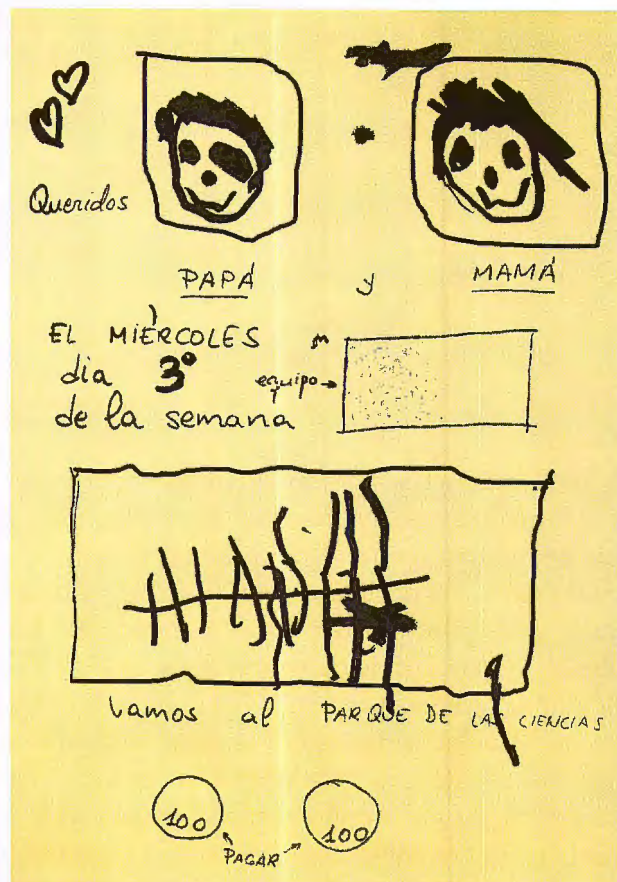 Queridos
PAPÁ y MAMÁ
EL MIÉRCOLES
día 3º
de la semana
equipo
Vamos al PARQUE DE LAS CIENCIAS
100 100
PAGAR